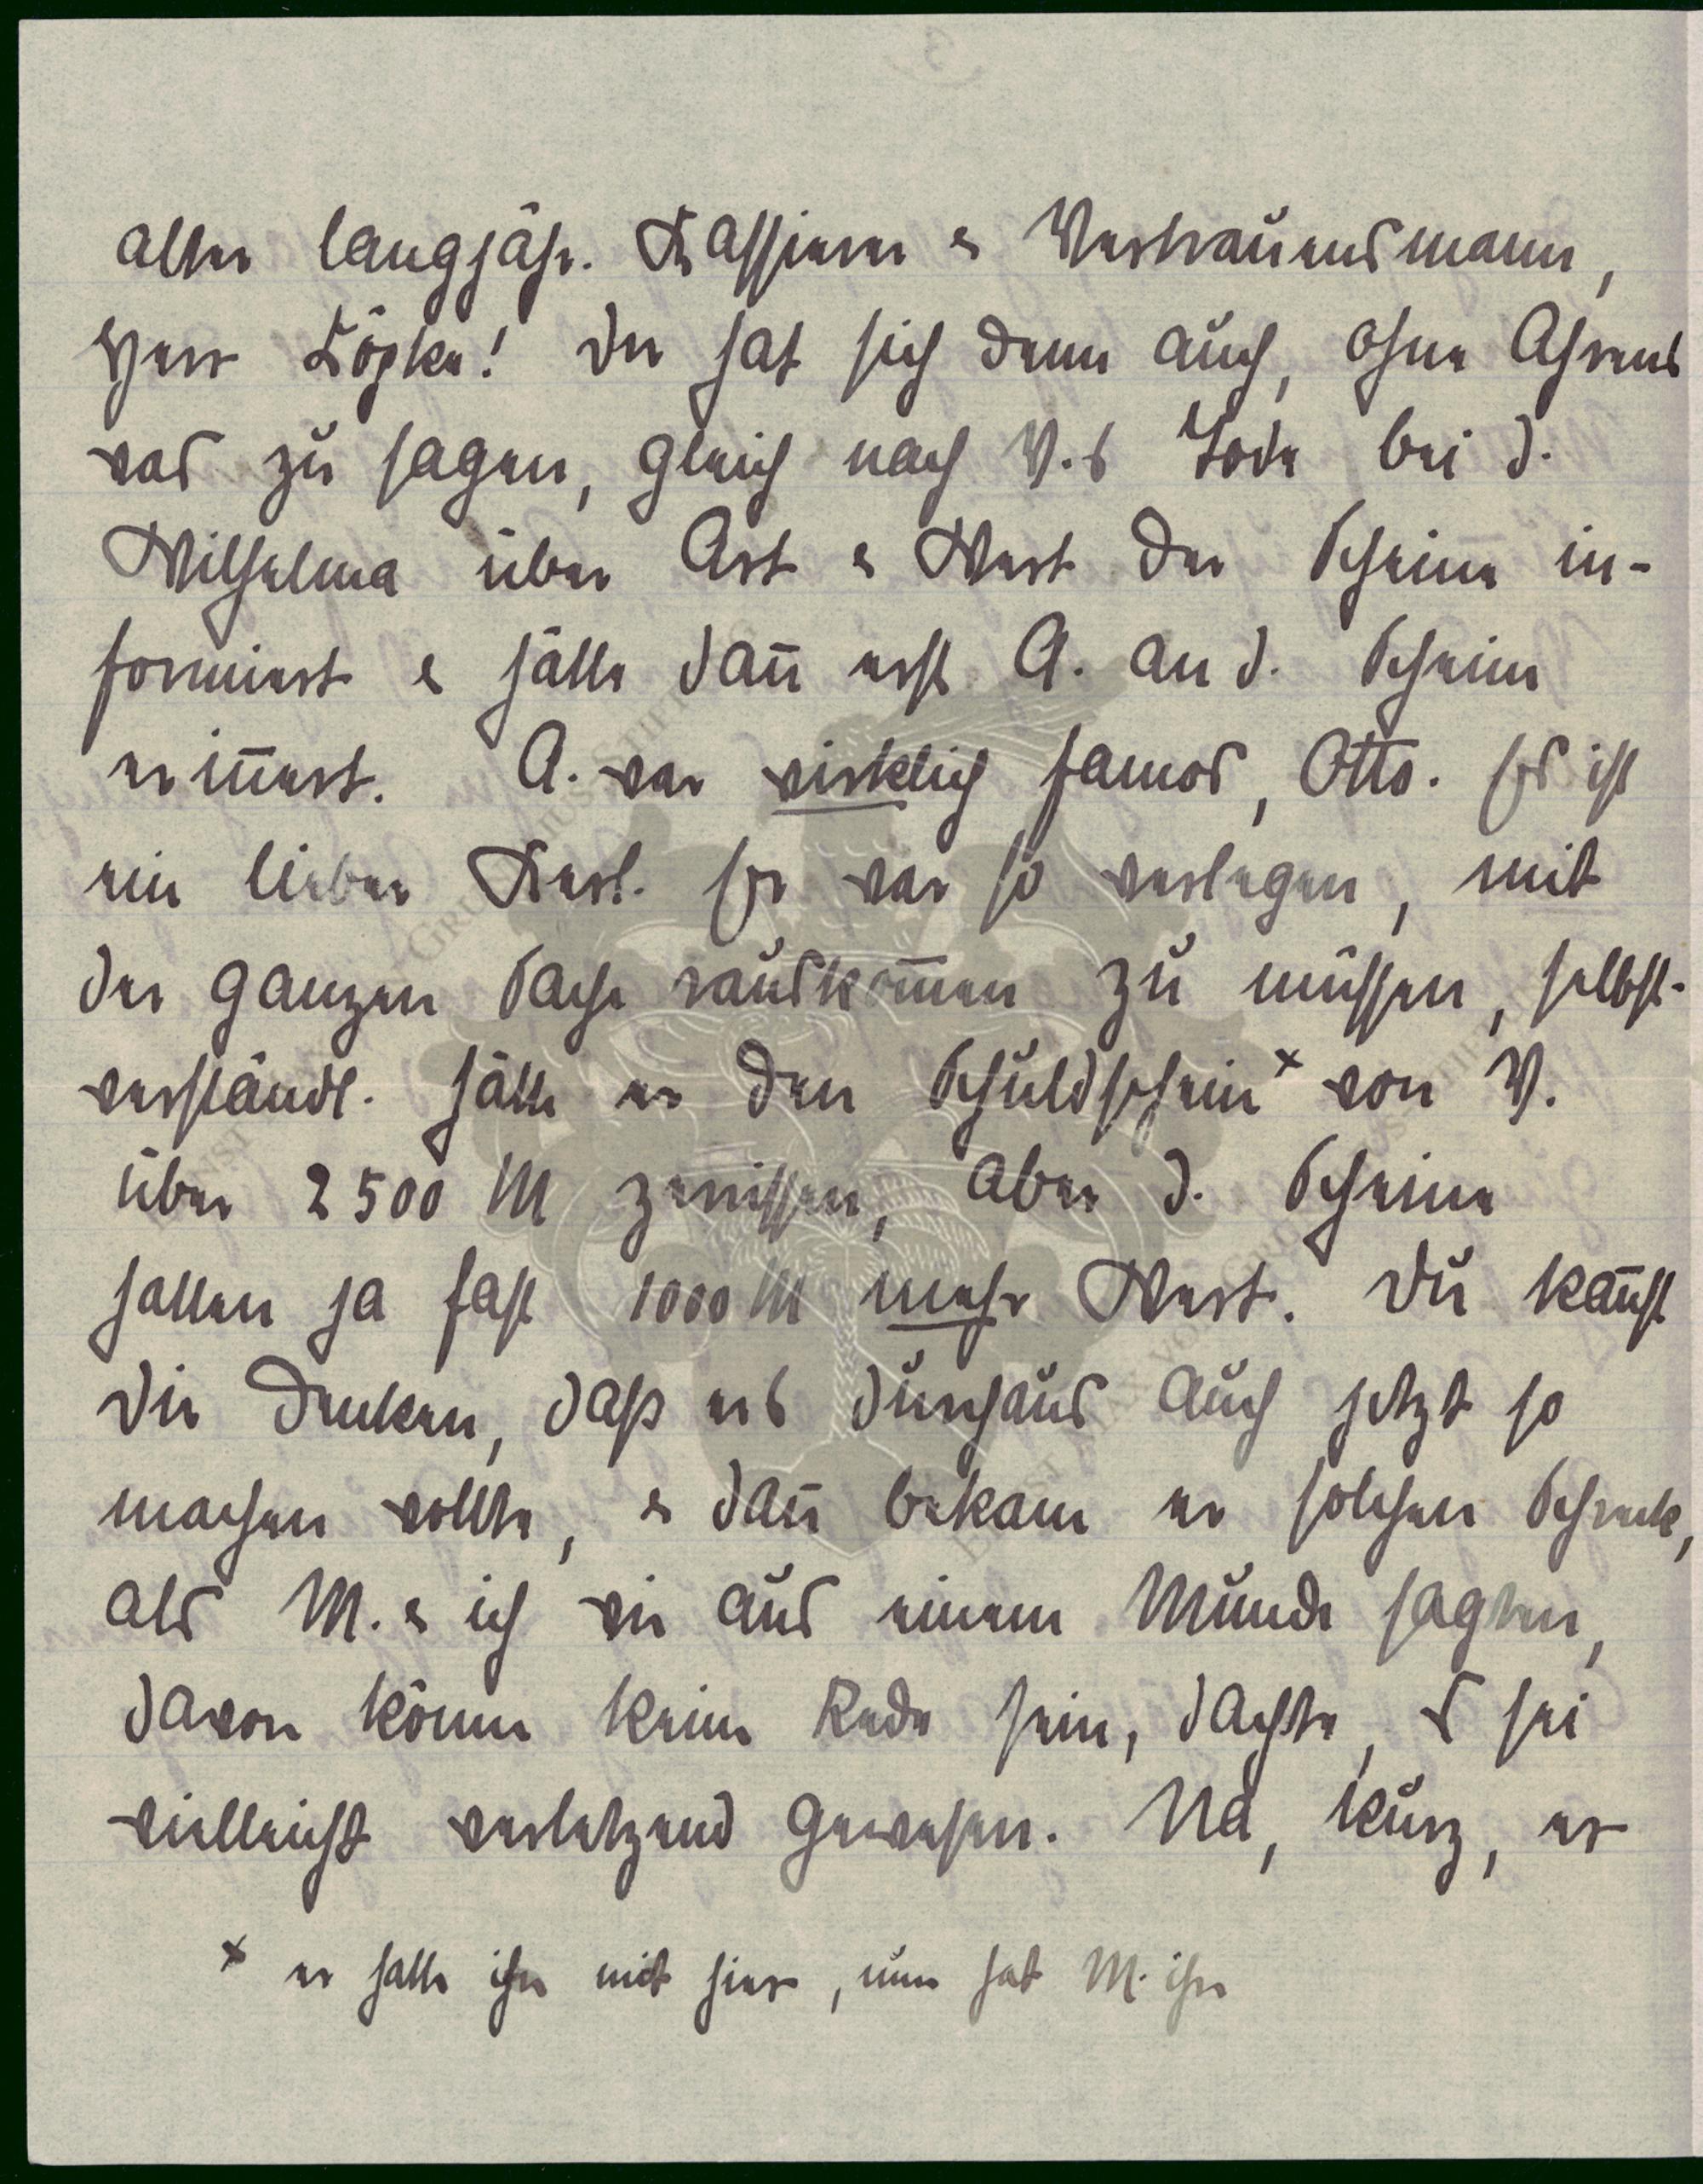 alter langjähr. Kassierer & Vertrauensmann,
Herr Töpke! Der hat sich denn auch, ohne Ahrens
was zu sagen, gleich nach V.s Tode bei d.
Wilhelma über Art & Wert der Scheine in-
formiert & hätte dan̄ erst A. an d. Scheine
erin̄ert. A. war wirklich famos, Otto. Es ist
ein lieber Kerl. Er war so verlegen, mit
der ganzen Sache rauskom̄en zu müssen, selbst-
verständl. hätte er den Schuldschein x von V.
über 2500 M zerrissen, aber d. Scheine
hatten ja fast 1000 M mehr Wert. Du kan̄st
Dir denken, daß er's durchaus auch jetzt so
machen wollte, & dan̄ bekam er solchen Schreck,
als M. & ich wie aus einem Munde sagten,
davon könne keine Rede sein, dachte, 's sei
vielleicht verletzend gewesen. Na, kurz, er
x er hatte ihn mit hier, nun hat M. ihn